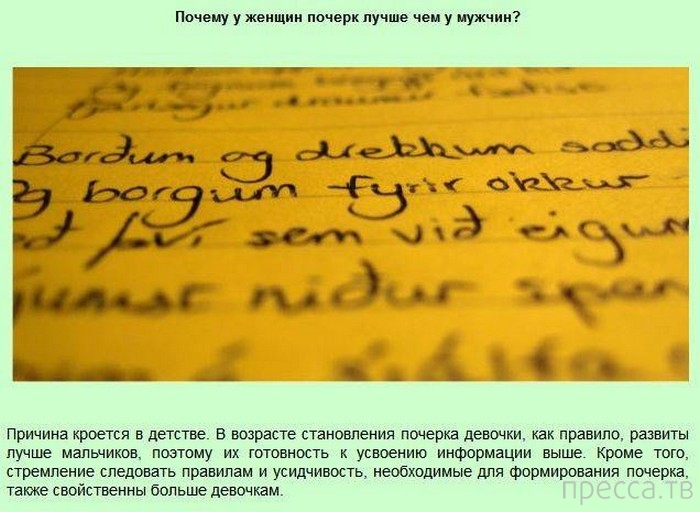 Почему у женщин почерк лучше чем у мужчин?
Borðum og drekkum saddi
og borgum fyrir okkur
því sem við eigum
niður span
Причина кроется в детстве. В возрасте становления почерка девочки, как правило, развиты
лучше мальчиков, поэтому их готовность к усвоению информации выше. Кроме того,
стремление следовать правилам и усидчивость, необходимые для формирования почерка,
также свойственны больше девочкам.
пресса.тв